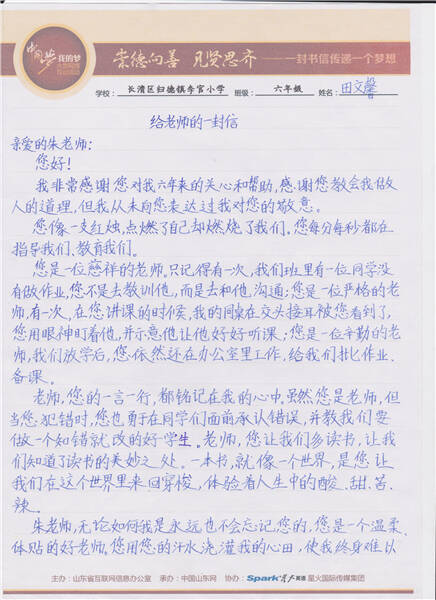 中国梦 我的梦
崇德向善 见贤思齐 —— 一封书信传递一个梦想
学校: 长清区归德镇李官小学 班级: 六年级 姓名: 田文馨
给老师的一封信
亲爱的朱老师:
您好!
我非常感谢您对我六年来的关心和帮助,感谢您教会我做
人的道理,但我从未向您表达过我对您的敬意。
您像一支红烛,点燃了自己却燃烧了我们。您每分每秒都在
指导我们、教育我们。
您是一位慈祥的老师。只记得有一次,我们班里有一位同学没
有做作业,您不是去教训他,而是去和他沟通;您是一位严格的老
师,有一次,在您讲课的时候,我的同桌在交头接耳被您看到了,
您用眼神盯着他,并示意他让他好好听课;您是一位辛勤的老
师,我们放学后,您依然还在办公室里工作,给我们批作业、
备课。
老师,您的一言一行,都铭记在我的心中。虽然您是老师,但
当您犯错时,您也勇于在同学们面前承认错误,并教我们要
做一个知错就改的好学生。老师,您让我们多读书,让我
们知道了读书的美妙之处。一本书,就像一个世界,是您让
我们在这个世界里来回穿梭,体验着人生中的酸、甜、苦、
辣。
朱老师,无论如何我是永远也不会忘记您的,您是一个温柔
体贴的好老师。您用您的汗水浇灌我的心田,使我终身难以
主办:山东省互联网信息办公室 承办:中国山东网 协办:Spark星火英语 星火国际传媒集团